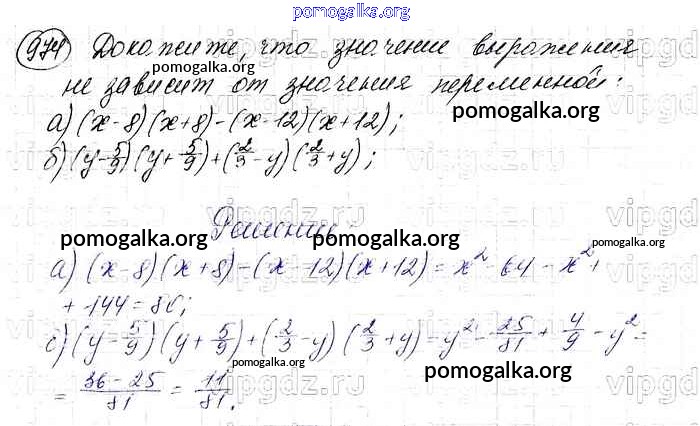 pomogalka.org
974 Докажите, что значение выражения
pomogalka.org
не зависит от значения переменной:
pomogalka.org
а) (x-8)(x+8)-(x-12)(x+12);
б) (y-5/9)(y+5/9)+(2/3-y)(2/3+y);
vipgdz.ru
Решение:
pomogalka.org
pomogalka.org
а) (x-8)(x+8)-(x-12)(x+12)=x²-64-x²+
+144=80;
pomogalka.org
с) (y-5/9)(y+5/9)+(2/3-y)(2/3+y)=y²-25/81+4/9-y²=
pomogalka.org
pomogalka.org
=(36-25)/81=11/81.
vipgdz.ru